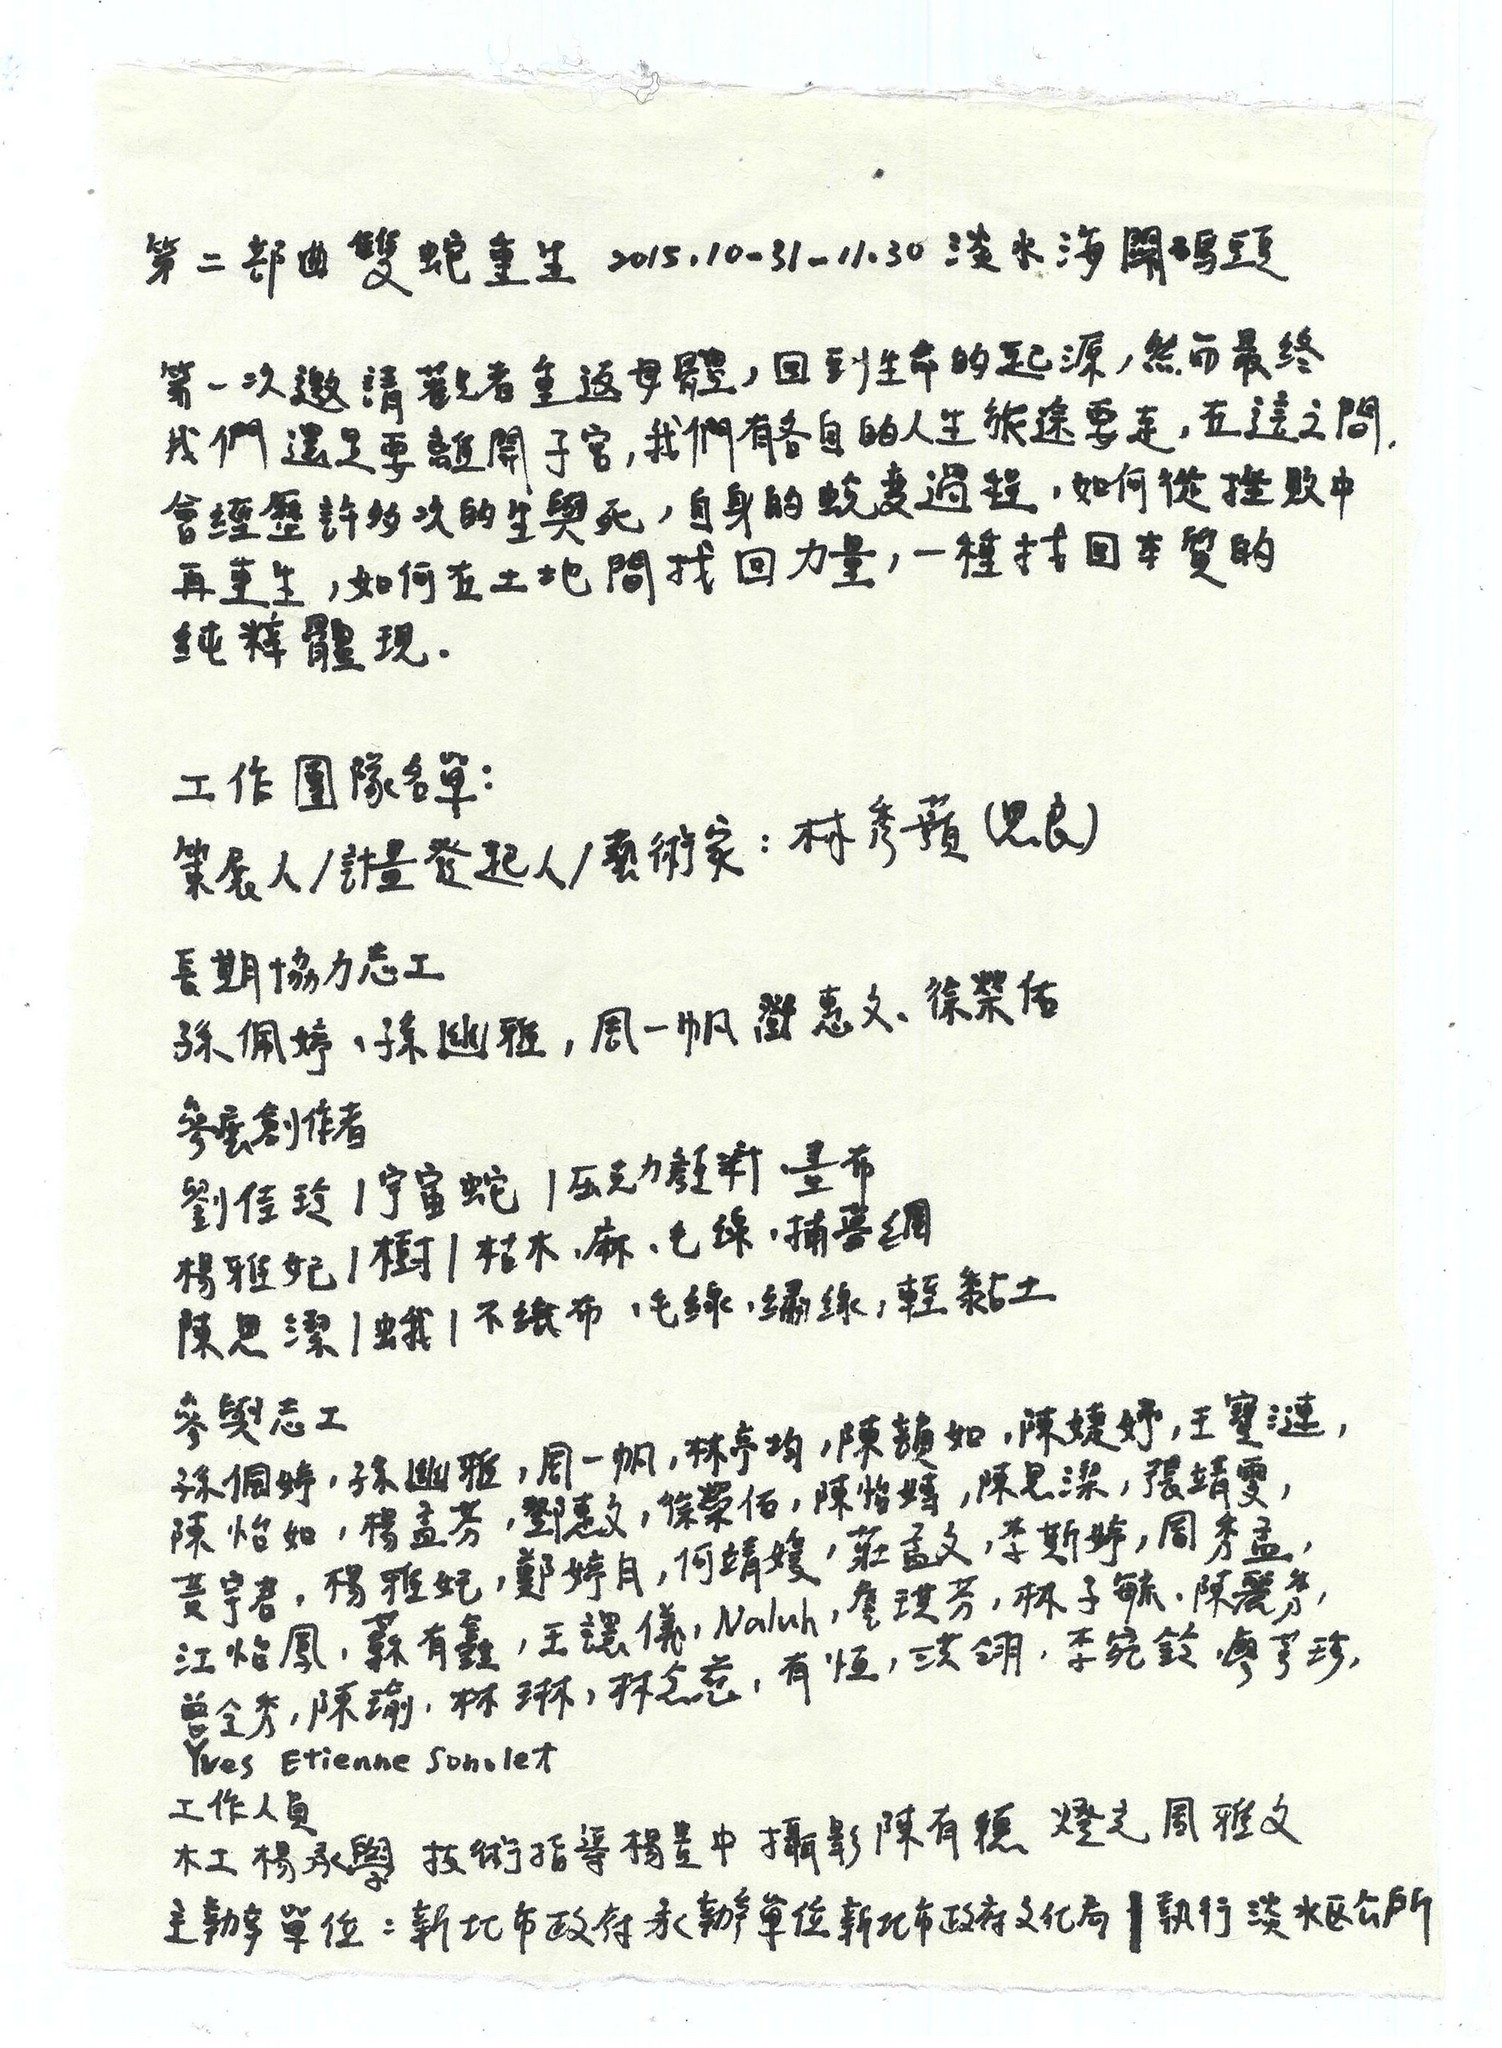 第二部曲 雙蛇重生 2015.10-31-11.30 淡水海關碼頭
第一次邀請觀者重返母體,回到生命的起源,然而最終
我們還是要離開子宮,我們有各自的人生旅途要走,在這之間,
會經歷許多次的生與死,自身的蛻變過程,如何從挫敗中
再重生,如何在土地間找回力量,一種找回本質的
純粹體現.
工作團隊名單:
策展人/計畫發起人/藝術家:林秀蘋(思良)
長期協力志工
孫佩婷、孫幽雅,周一帆 鄧惠文、徐榮佑
參展創作者
劉佳玲|宇宙蛇|压克力顏料、畫布
楊雅妃|樹|枯木、麻、毛線、捕夢網
陳思潔|蛾|不織布、毛線、繡線,輕黏土
參與志工
孫佩婷,孫幽雅,周一帆,林亭均,陳韻如,陳婕妤,王寶漣,
陳怡如,楊孟芬,鄧惠文,徐榮佑,陳怡,陳思潔,張靖雯,
黃宇君,楊雅妃,鄭婷月,何靖媛,莊孟文,李斯婷,周秀孟,
江怡鳳,蘇有鑫,王讌儀,Naluh,詹琪芬,林子毓、陳麗芬,
曾全秀,陳瑜,林琳,林念慈,有恆,洪翊,李宛錂,廖芳珍,
Yves Etienne Sonolet
工作人員
木工 楊承學 技術指導 楊豐中 攝影 陳有德 燈光 周雅文
主辦單位:新北市政府 承辦單位 新北市政府文化局|執行 淡水區公所